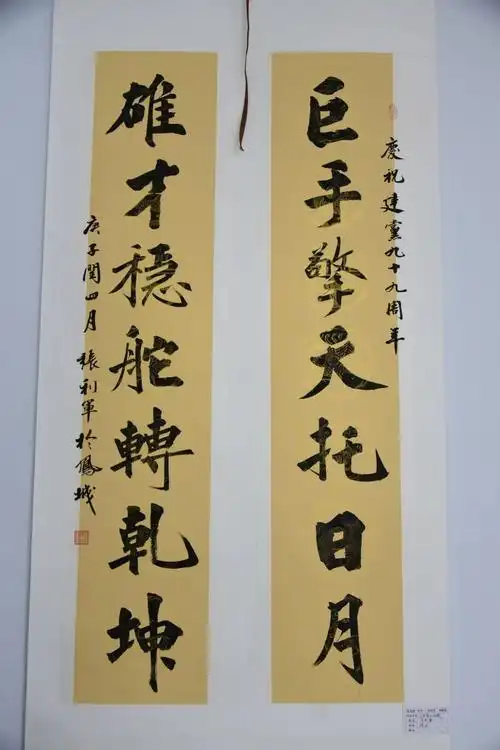 慶祝建黨九十九周年
巨手擎天托日月
雄才穩舵轉乾坤
庚子閏四月 張利軍於鳳城